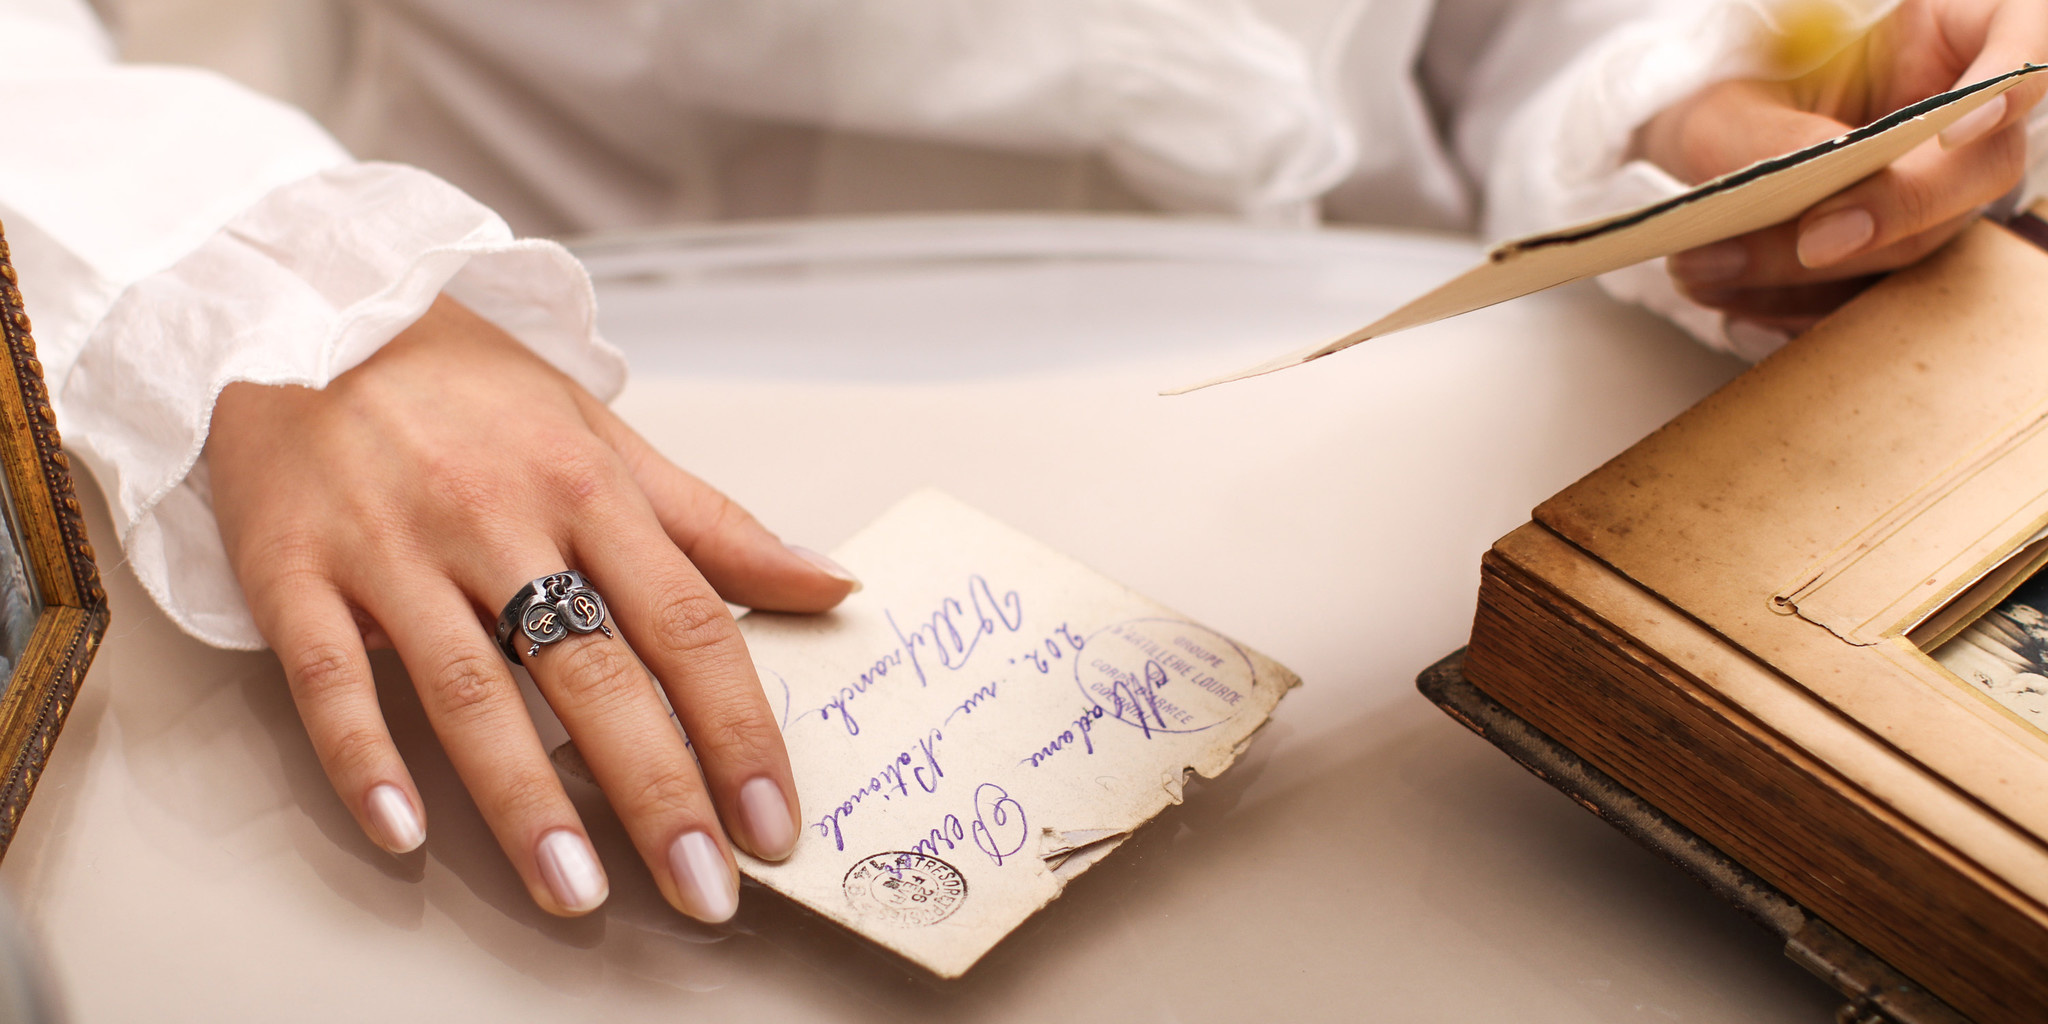 A B
GROUPE
D'ARTILLERIE LOURDE
CORPS D'ARMEE
Madame Perron
202, rue Nationale
Villefranche
TRESOR ET POSTES
26